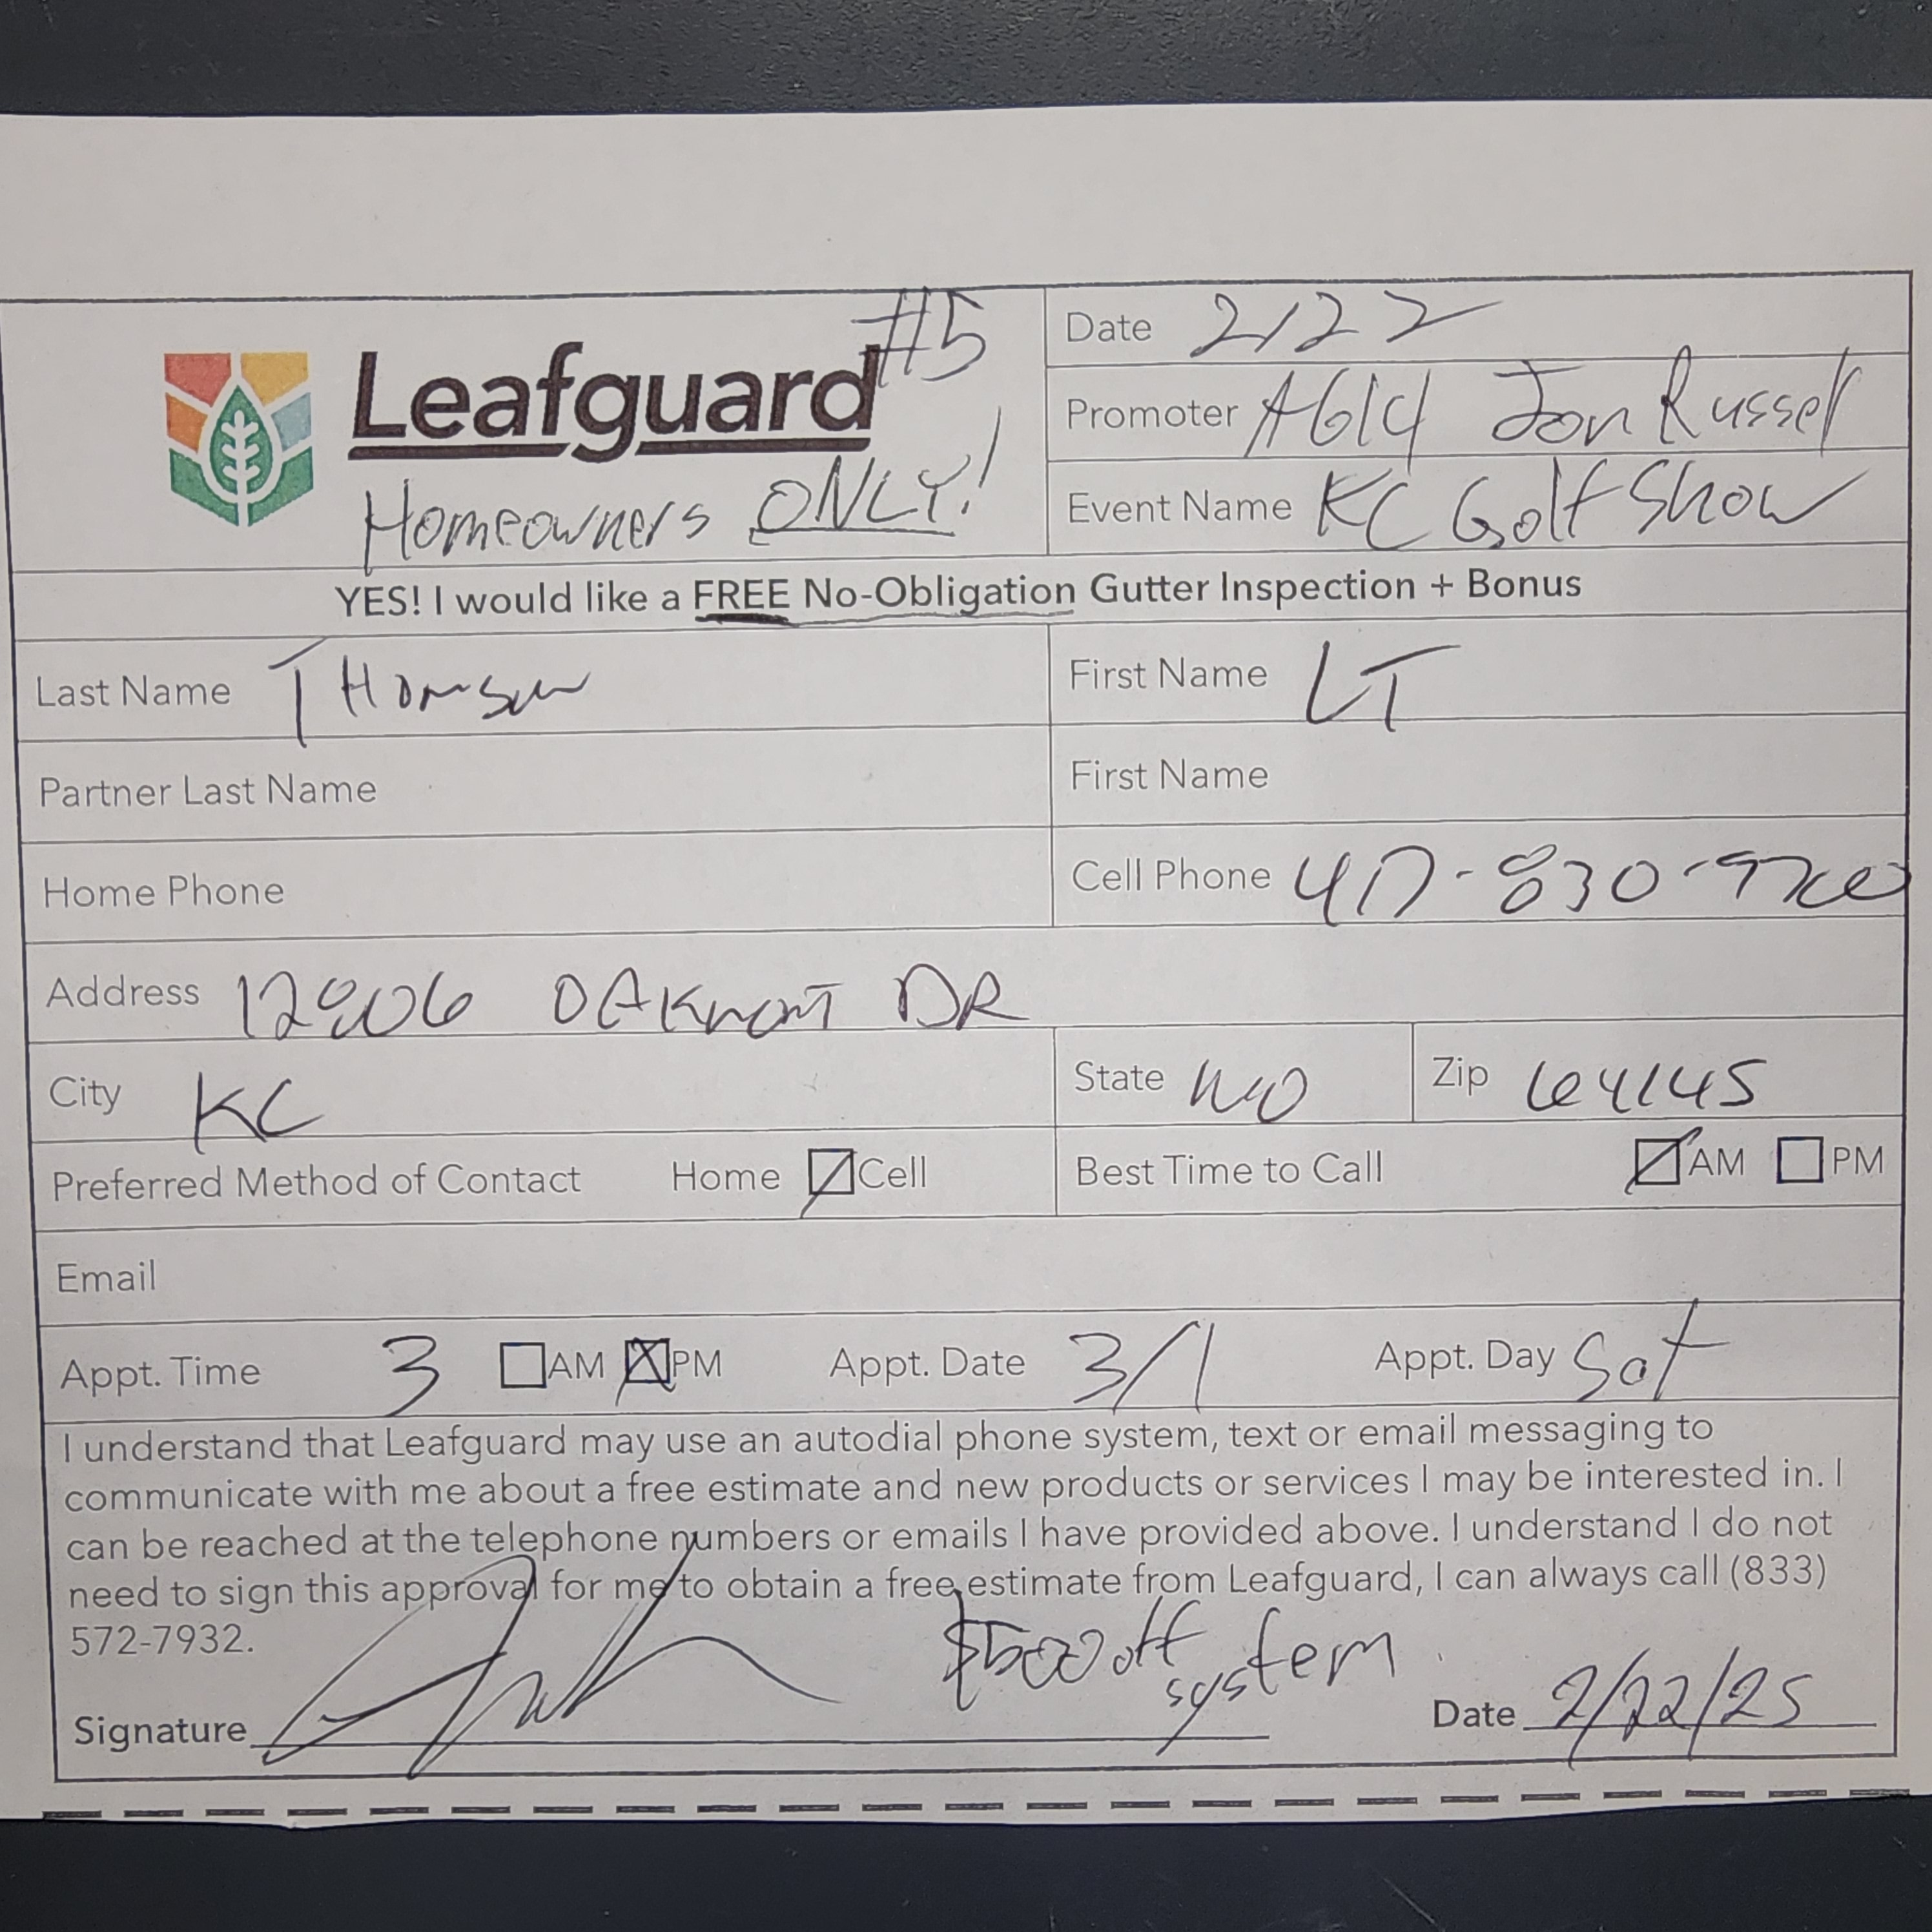 #5
Leafguard
Homeowners ONLY!
Date 2/22
Promoter A614 Jon Russell
Event Name KC Golf Show
YES! I would like a FREE No-Obligation Gutter Inspection + Bonus
Last Name THomson
First Name LT
Partner Last Name
First Name
Home Phone
Cell Phone 417-830-9700
Address 12906 DR
City KC
State MO
Zip 64145
Preferred Method of Contact Home Cell
Best Time to Call AM PM
Email
Appt. Time 3 AM PM Appt. Date 3/1 Appt. Day Sat
I understand that Leafguard may use an autodial phone system, text or email messaging to
communicate with me about a free estimate and new products or services I may be interested in. I
can be reached at the telephone numbers or emails I have provided above. I understand I do not
need to sign this approval for me to obtain a free estimate from Leafguard, I can always call (833)
572-7932.
$500 off system
Signature
Date 2/22/25